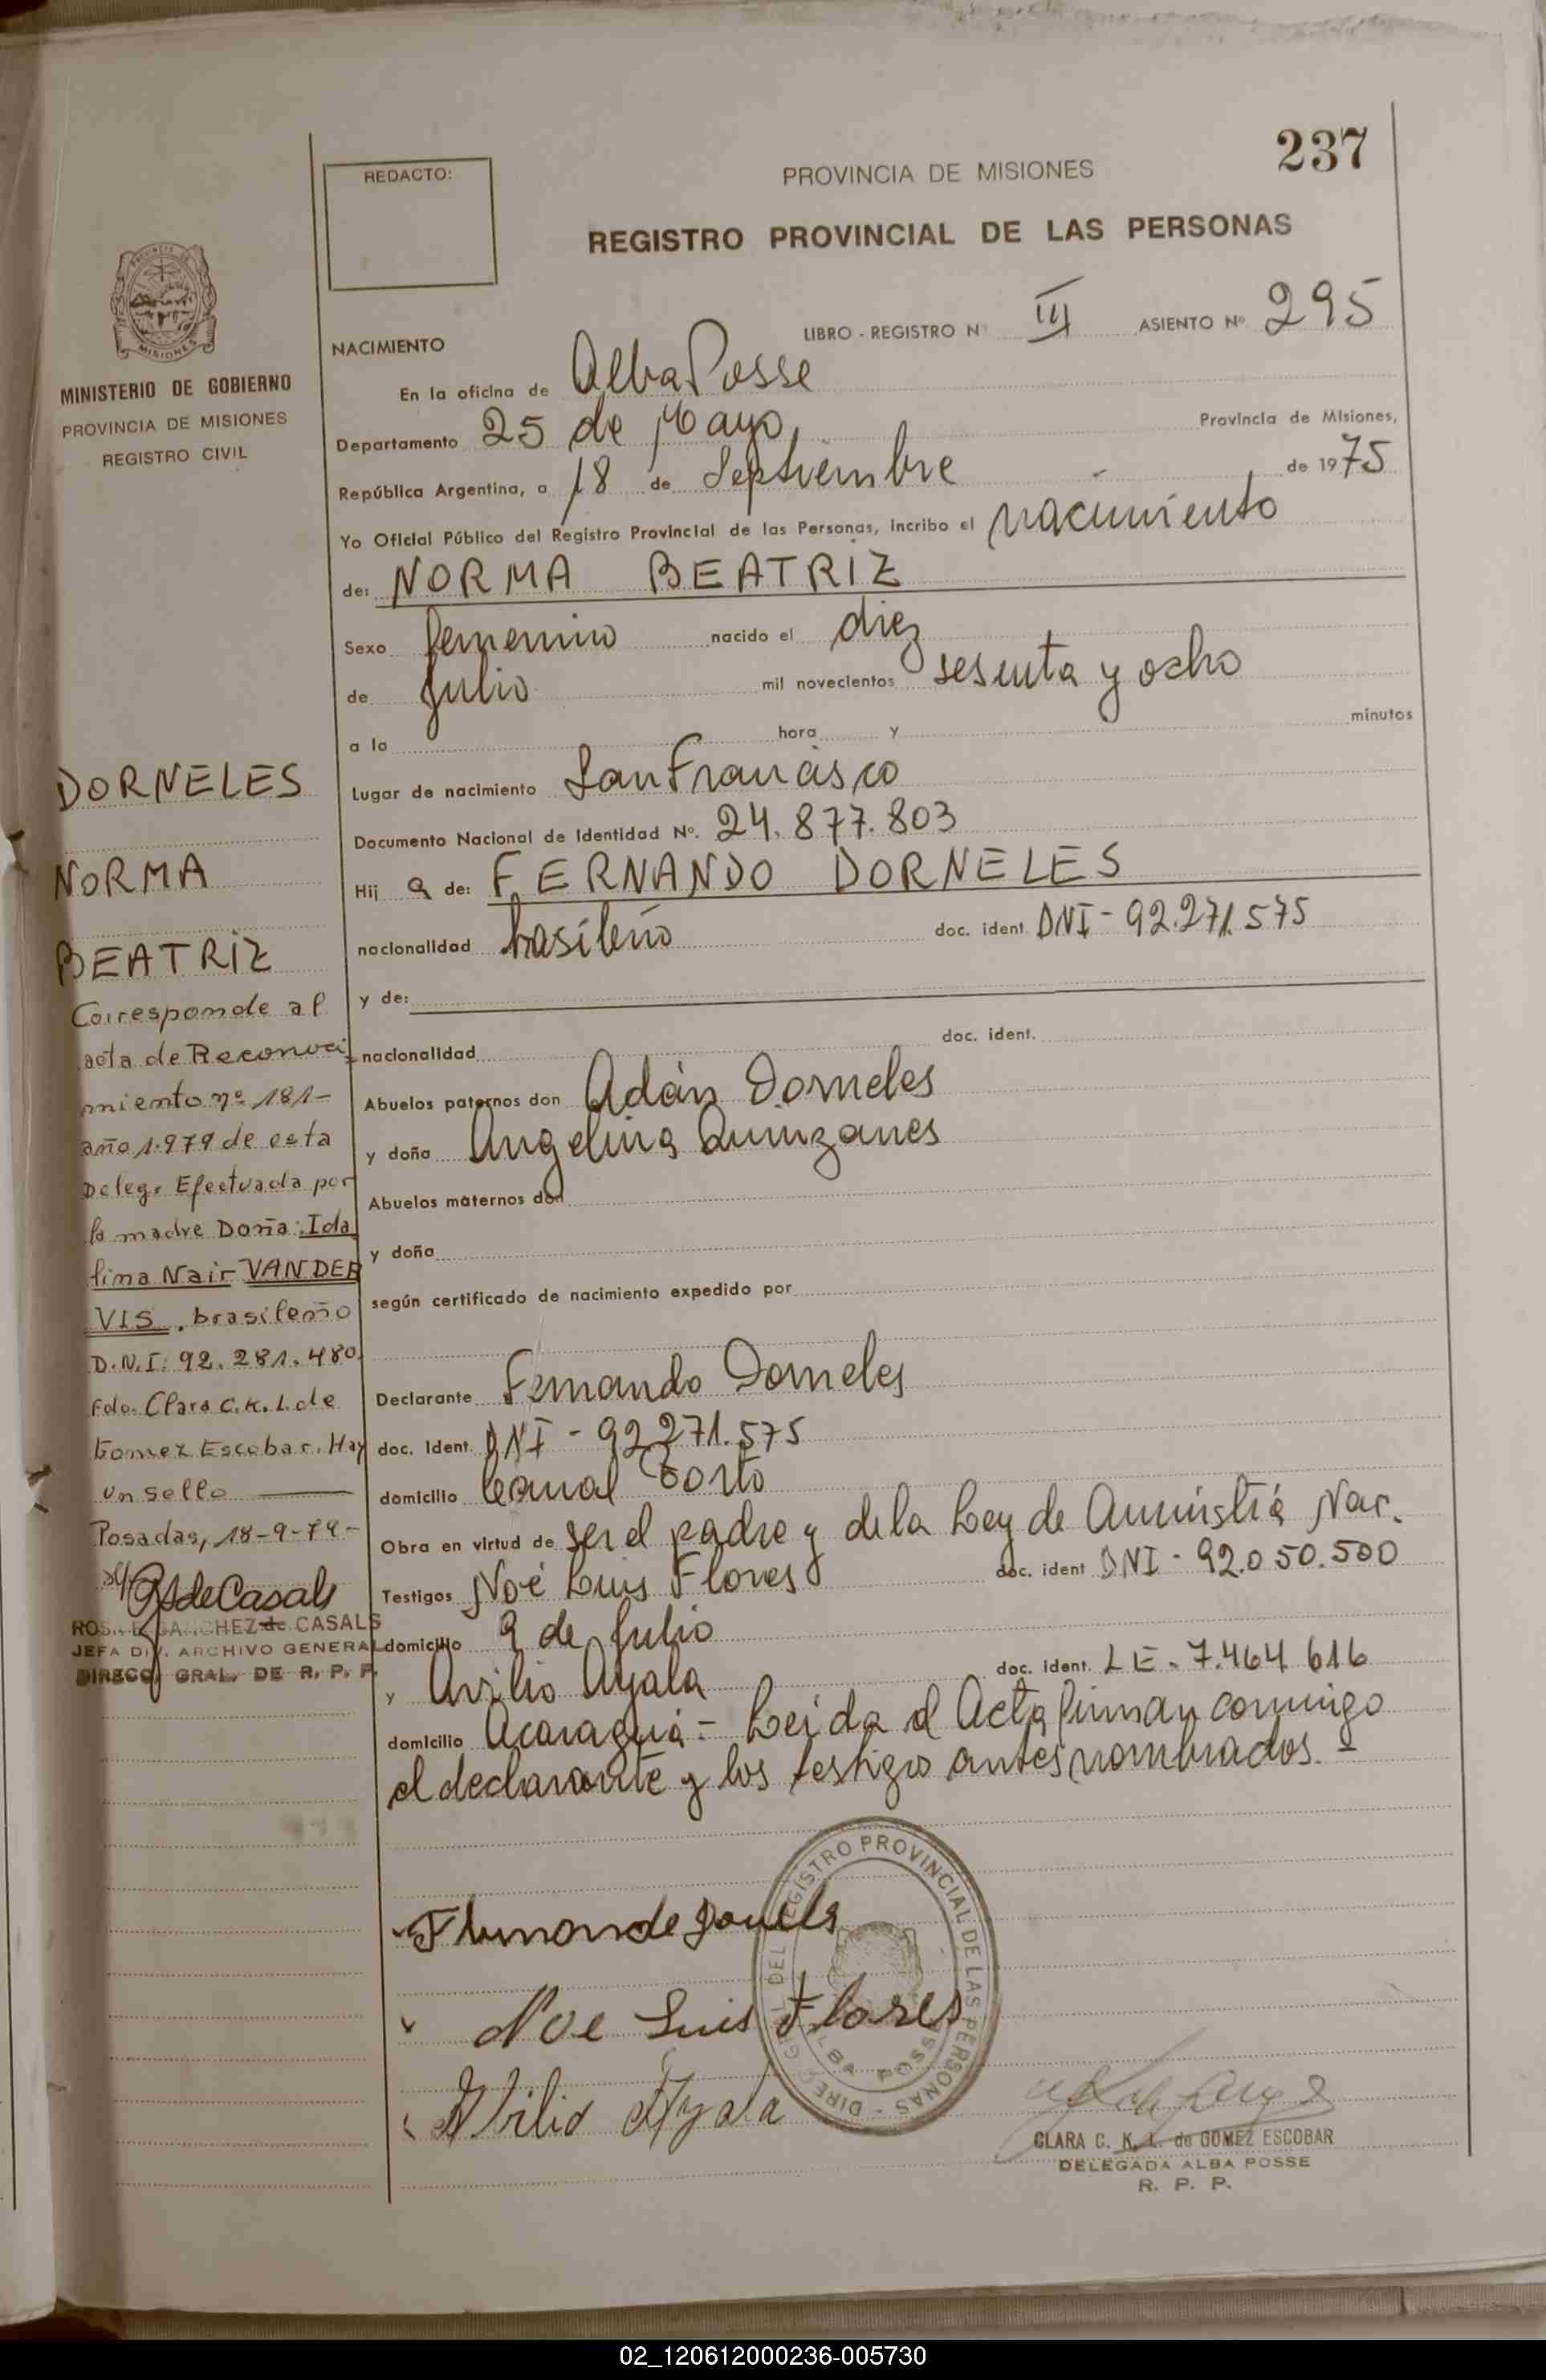 237
REDACTO:
PROVINCIA DE MISIONES
REGISTRO PROVINCIAL DE LAS PERSONAS
MISIONES
MINISTERIO DE GOBIERNO
PROVINCIA DE MISIONES
REGISTRO CIVIL
LIBRO - REGISTRO Nº III ASIENTO Nº 295
NACIMIENTO
En la oficina de Alba Posse
Departamento 25 de Mayo, Provincia de Misiones,
República Argentina, a 18 de Septiembre de 1975
Yo Oficial Público del Registro Provincial de las Personas, incribo el nacimiento
de: NORMA BEATRIZ
Sexo femenino nacido el diez
de Julio mil novecientos sesenta y ocho
a la hora y minutos
Lugar de nacimiento San Francisco
Documento Nacional de Identidad Nº. 24.877.803
Hij a de: FERNANDO DORNELES
nacionalidad brasileño doc. ident. DNI - 92.271.575
y de:
nacionalidad doc. ident.
Abuelos paternos don Adán Dorneles
y doña Angelina Quinzanes
Abuelos maternos don
y doña
según certificado de nacimiento expedido por
Declarante Fernando Dorneles
doc. Ident. DNI - 92271.575
domicilio Canal Torto
Obra en virtud de ser el padre y de la Ley de Amnistía Nac.
Testigos Noé Luis Flores doc. ident DNI - 92.050.500
domicilio 9 de Julio
y Avilio Ayala doc. ident. LE - 7.464 616
domicilio Acaraguá - Leída el Acta firman conmigo
el declarante y los testigos antes nombrados. -
DORNELES
NORMA
BEATRIZ
Corresponde al
acta de Reconoci-
miento nº 181-
año 1.979 de esta
Deleg. Efectuada por
la madre Doña: Ida
lina Nair VANDER
VIS. brasileño
D.N.I: 92.281.480.
Fdo. Clara C.K.L. de
Gomez Escobar. Hay
un sello
Posadas, 18-9-79-
ROSA E. SANCHEZ de CASALS
JEFA DIV. ARCHIVO GENERAL
DIRECC. GRAL. DE R. P. P.
DIREC. GRAL. DEL REGISTRO PROVINCIAL DE LAS PERSONAS -
ALBA POSSE
Noe Luis Flores
Abilio Ayala
CLARA C. K. L. de GOMEZ ESCOBAR
DELEGADA ALBA POSSE
R. P. P.
02_120612000236-005730